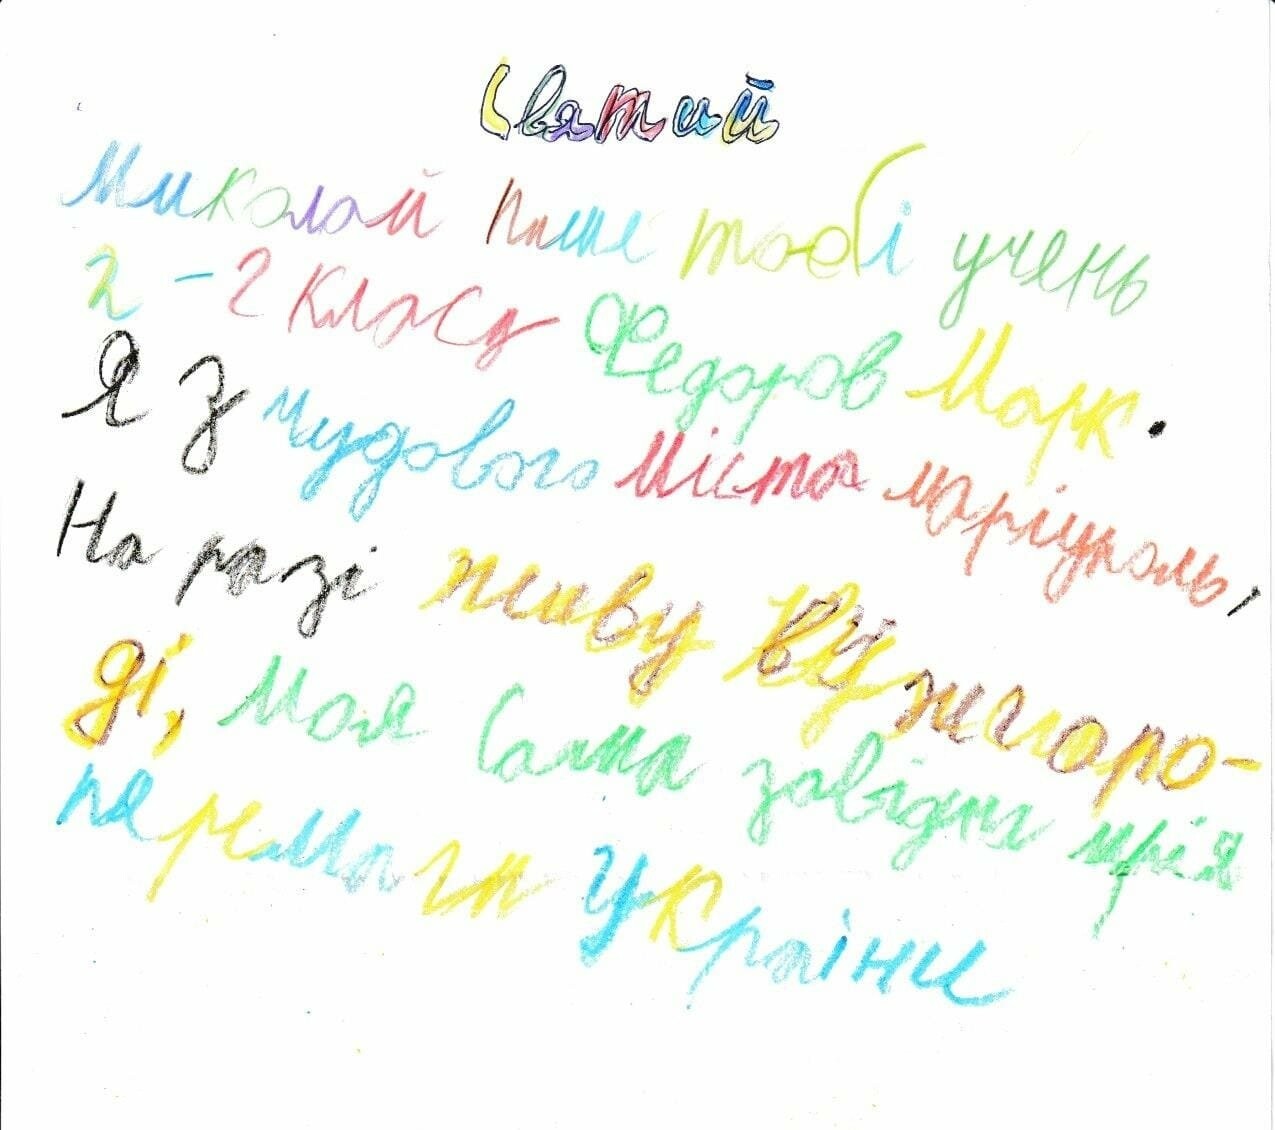 Святий
Миколай пише тобі учень
2-Г класу Федоров Марк.
Я З чудового міста маріуполь,
На разі живу Вужгоро-
ді, моя Сама завідна мрія
перемога України